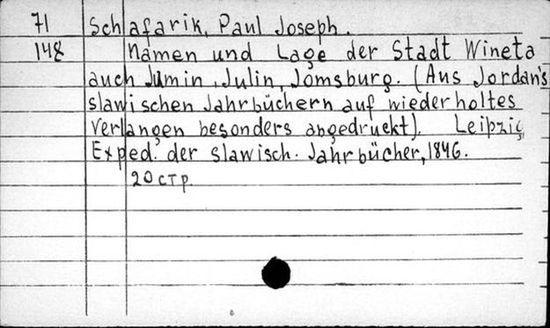 71 Schafarik, Paul Joseph.
148 Namen und Lage der Stadt Wineta
auch Jumin, Julin, Jomsburg. (Aus Jordan's
slawischen Jahrbüchern auf wiederholtes
Verlangen besonders angedruckt). Leipzig
Exped. der slawisch. Jahrbücher, 1846.
20 стр.